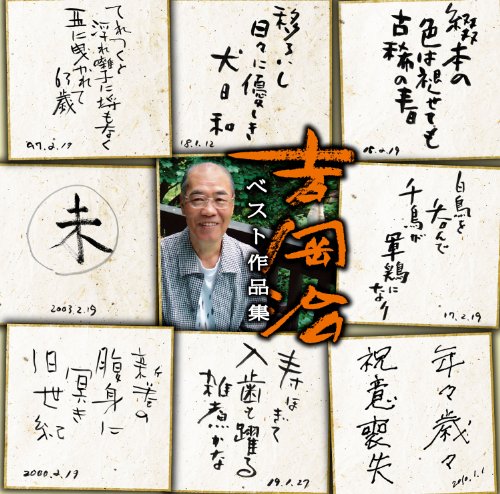 てれつくと
浮れ囃子に埒もなく
丑に曳かれて
63歳
97.2.19
移ろいし
日々に優しき
犬日和
18.1.12
綴本の
色は褪せても
古稀の春
05.2.19
未
2003.2.19
吉岡治
ベスト作品集
白鳥を
呑んで
千鳥が
軍鶏になり
17.2.19
新巻の
腹身に
冥き
旧世紀
2000.2.13
寿ほぎて
入歯も躍る
雑煮かな
19.1.27
年々歳々
祝意喪失
2010.1.1